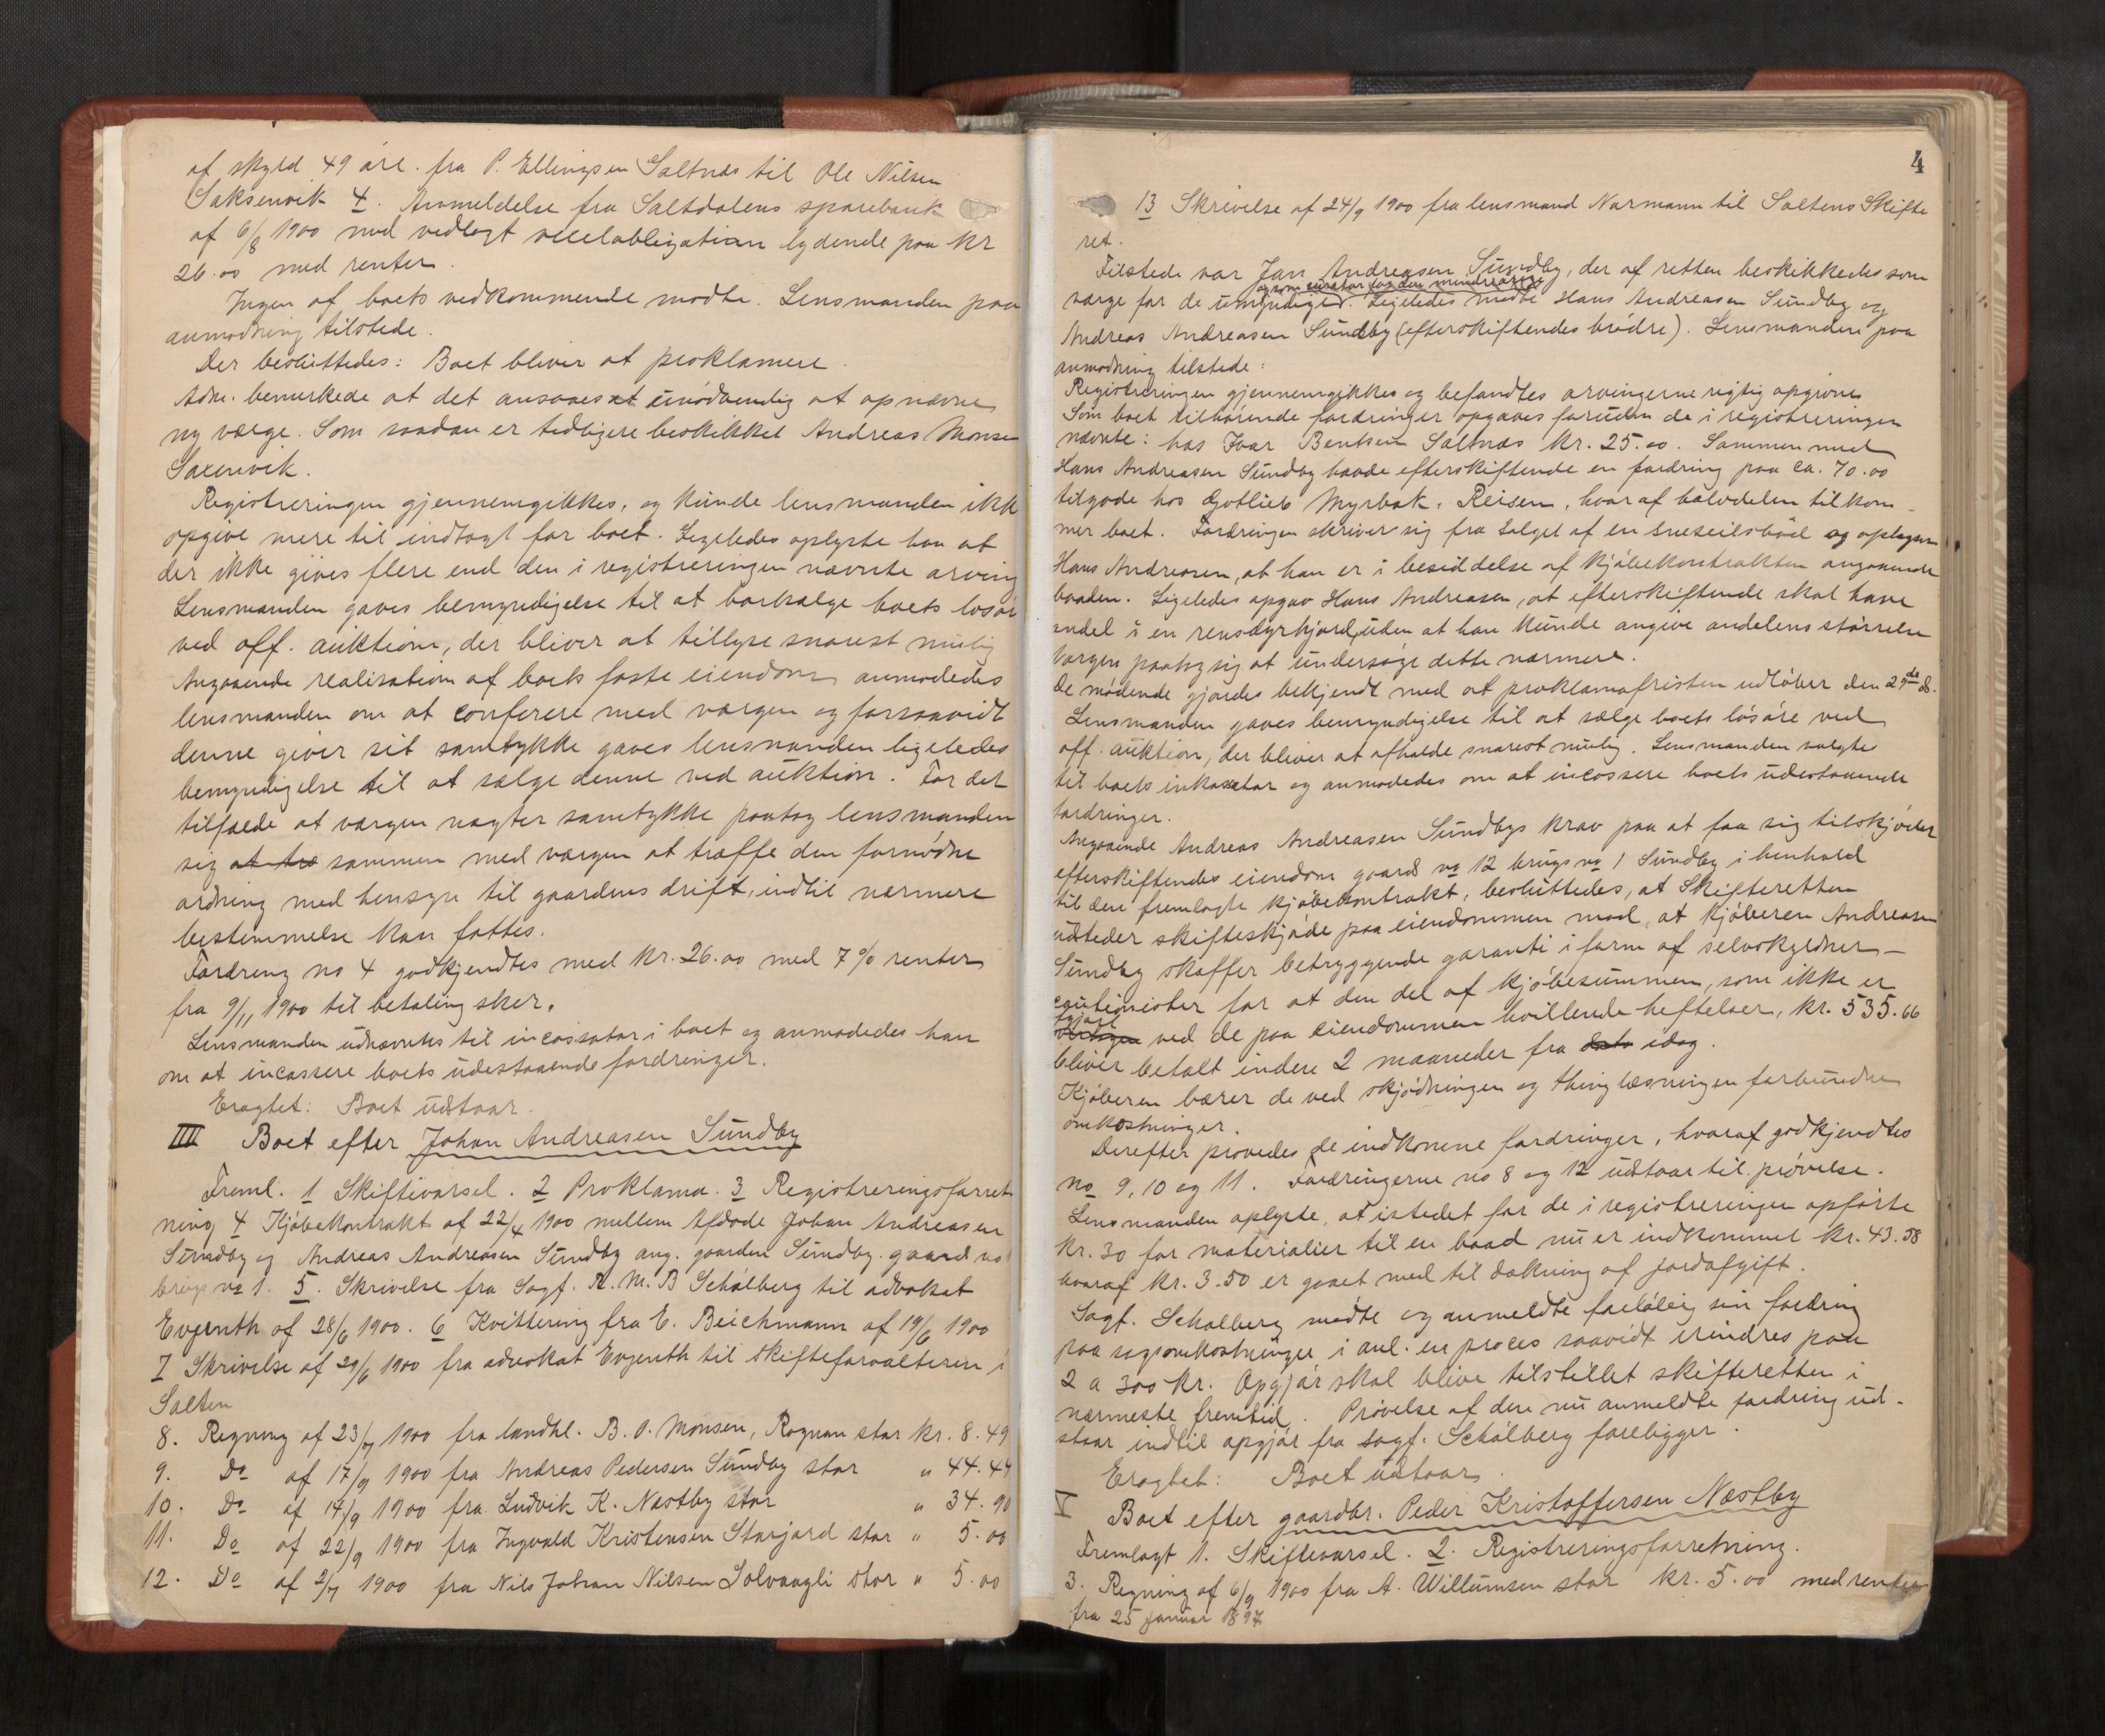 af skyld 49 øre. fra P. Ellingsen Saltnæs til Ole Nilsen
Saksenvik 4. Anmeldelse fra Saltdalens sparebank
af 6/8 1900 med vedlagt vexelobligation lydende paa kr
26.00 med renter.
Ingen af boets vedkommende mødte. Lensmanden paa
anmodning tilstede.
Der besluttedes: Boet bliver at proklamere.
Adm. bemerkede at det ansaaes unødvendig at opnævne
ny værge. Som saadan er tidligere beskikket Andreas Monse
Saxenvik.
Registreringen gjennemgikkes, og kunde lensmanden ikke
opgive mere til indtægt for boet. Ligeledes oplyste han at
der ikke gives flere end den i registreringen nævnte arving
Lensmanden gaves bemyndigelse til at bortsælge boets løsøre
ved off. auktion, der bliver at tillyse snarest mulig
Angaaende realisation af boets faste eiendom anmodedes
lensmanden om at conferere med værgen og forsaavidt
denne giver sit samtykke gaves lensmanden ligeledes
bemyndigelse til at sælge denne ved auktion. For det
tilfælde at værgen nægter samtykke paatog lensmanden
sig at træ sammen med værgen at træffe den fornødne
ordning med hensyn til gaardens drift, indtil nærmere
bestemmelse kan fattes.
Fordring no 4 godkjendtes med kr. 26.00 med 7 % renter
fra 9/11 1900 til betaling sker.
Lensmanden udnævntes til incassator i boet og anmodedes han
om at incassere boets udestaaende fordringer.
Eragtet: Boet udstaar.
IIII Boet efter Johan Andreasen Sundby
Freml. 1 Skiftevarsel. 2 Proklama. 3 Registreringsforret
ning 4 Kjøbekontrakt af 22/4 1900 mellem Afdøde Johan Andreasen
Sundby og Andreas Andreasen Sundby ang. gaarden Sundby. gaards no
brugs no 1. 5. Skrivelse fra Sagf. R. M. B Schølberg til advokat
Evjenth af 28/6 1900. 6 Kvittering fra E. Beichmann af 19/6 1900
7 Skrivelse af 29/6 1900 fra advokat Evjenth til skifteforvalteren i
Salten
8. Regning af 23/7 1900 fra landhl. B. O. Monsen, Rognan stor kr. 8.49
9. Do af 17/9 1900 fra Andreas Pedersen Sundby stor " 44.44
10. Do af 14/9 1900 fra Ludvik K. Næstby stor " 34.90
11. Do af 22/9 1900 fra Ingvald Kristensen Storjord stor " 5.00
12. Do af 2/7 1900 fra Nils Johan Nilsen Solvaagli stor " 5.00
4
13 Skrivelse af 24/9 1900 fra lensmand Normann til Saltens Skifte
ret.
Tilstede var Jan Andreasen Sundby, der af retten beskikkedes som
og som curator for den mindreaarige
værge for de umyndige. Ligeledes mødte Hans Andreasen Sundby og
Andreas Andreasen Sundby (efterskiftendes brødre). Lensmanden paa
anmodning tilstede:
Registreringen gjennemgikkes og befandtes arvingerne rigtig opgivne
Som boet tilhørende fordringer opgaves foruden de i registreringen
nævnte: hos Ivar Bentsen Saltnæs kr. 25.00. Sammen med
Hans Andreasen Sundby havde efterskiftende en fordring paa ca. 70.00
tilgode hos Gotlieb Myrbak, Reisen, hvoraf halvdelen tilkom-
mer boet. Fordringen skriver sig fra salget af en sneseilsbåd og oplyser
Hans Andreasen, at han er i besiddelse af kjøbekontrakten angaaende
baaden. Ligeledes opgav Hans Andreasen, at efterskiftende skal have
andel i en rensdyrhjord, uden at han kunde angive andelens størrelse
Værgen paatog sig at undersøge dette nærmere.
De mødende gjordes bekjendt med at proklamafristen udløber den 29de ds.
Lensmanden gaves bemyndigelse til at sælge boets løsøre ved
off. auktion, der bliver at afholde snarest mulig. Lensmanden valgte
til boets inkassator og anmodedes om at incassere boets udestaaende
fordringer.
Angaaende Andreas Andreasen Sundbys krav paa at faa sig tilskjødet
efterskiftendes eiendom gaards no 12 brugs no 1 Sundby i henhold
til den fremlagte kjøbekontrakt, besluttedes, at Skifteretten
udsteder skifteskjøde paa eiendommen mod, at kjøberen Andreasen
Sundby skaffer betryggende garanti i form af selvskyldner-
cautionister for at den del af kjøbesummen, som ikke er
afgjort
ved de paa eiendommen hvilende heftelser, kr. 535.66
bliver betalt inden 2 maaneder fra dato idag.
Kjøberen bærer de ved skjødningen og thinglæsningen forbundne
omkostninger.
Derefter prøvedes de indkomne fordringer, hvoraf godkjendtes
no 9, 10 og 11. Fordringerne no 8 og 12 udstaar til prøvelse.
Lensmanden oplyste, at istedet for de i registreringen opførte
kr. 30 for materialier til en baad nu er indkommet kr. 43.58
hvoraf kr. 3.50 er gaaet med til dækning af jordafgift.
Sagf. Schølberg mødte og anmeldte foreløbig sin fordring
paa sagsomkostninger i anl. en proces saavidt erindres paa
2 a 300 kr. Opgjør skal blive tilstillet skifteretten i
nærmeste fremtid. Prøvelse af den nu anmeldte fordring ud-
staar indtil opgjør fra sagf. Schølberg foreligger.
Eragtet: Boet udstaar.
V Boet efter gaardbr. Peder Kristoffersen Næstby
Fremlagt 1. Skiftevarsel. 2. Registreringsforretning.
3. Regning af 6/9 1900 fra A. Willumsen stor kr. 5.00 med renter
fra 25 januar 1897